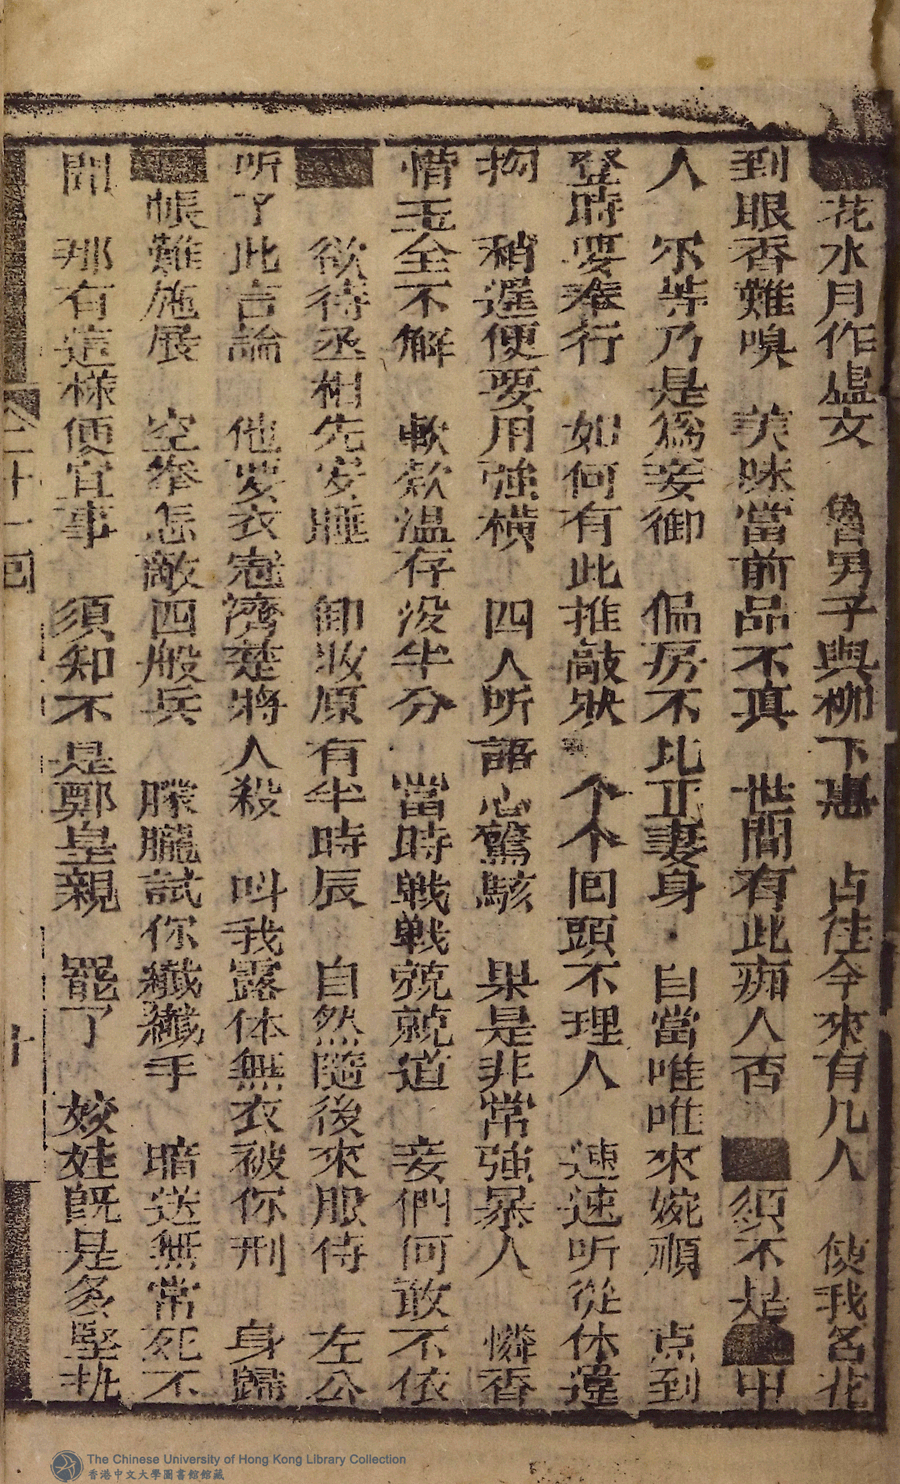 花水月作虛文　魯男子與柳下惠　占往今來有几人　使我名花
到眼香難嗅　美味當前品不真　世間有此痴人否　須不是　中
人　尔等乃是為妾御　偏房不比正妻身　自當唯唯來婉順　点到
登時要奉行　如何有此推敲狀　个个囘頭不理人　速速听從休違
拘　稍遲便要用強橫　四人听語心驚駭　果是非常強暴人　憐香
惜玉全不解　軟欵温存没半分　當時戦戦兢兢道　妾們何敢不依
欲待丞相先安睡　卸妝原有半時辰　自然隨後來服侍　左公
听了此言論　他要衣冠濟楚將人殺　呌我露体無衣被你刑　身歸
帳難施展　空拳怎敵四般兵　朦朧試你纖纖手　暗送無常死不
聞　那有這樣便宜事　須知不是鄭皇親　罷了　姣娃旣是多堅执
二十一囘
十
The Chinese University of Hong Kong Library Collection
香港中文大學圖書館館藏